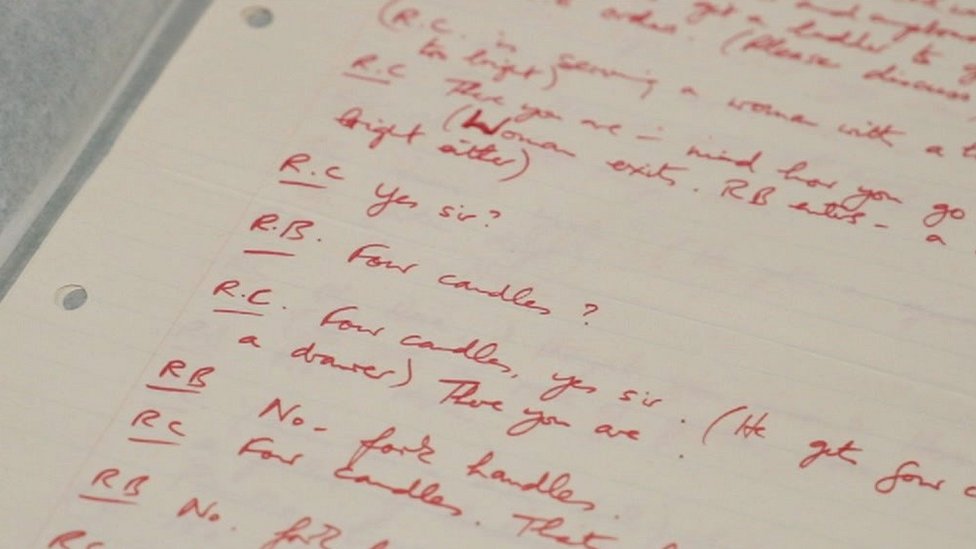 got a ladder to
order. (Please discuss
(R.C. is serving a woman with a
too bright)
R.C There you are - mind how you go
(Woman exits. RB enters - a
bright either)
R.C Yes sir?
R.B. Four candles?
R.C. Four candles, yes sir. (He gets four
a drawer) There you are.
RB No - fork handles.
RC Four candles. That
RB No. fork
RC